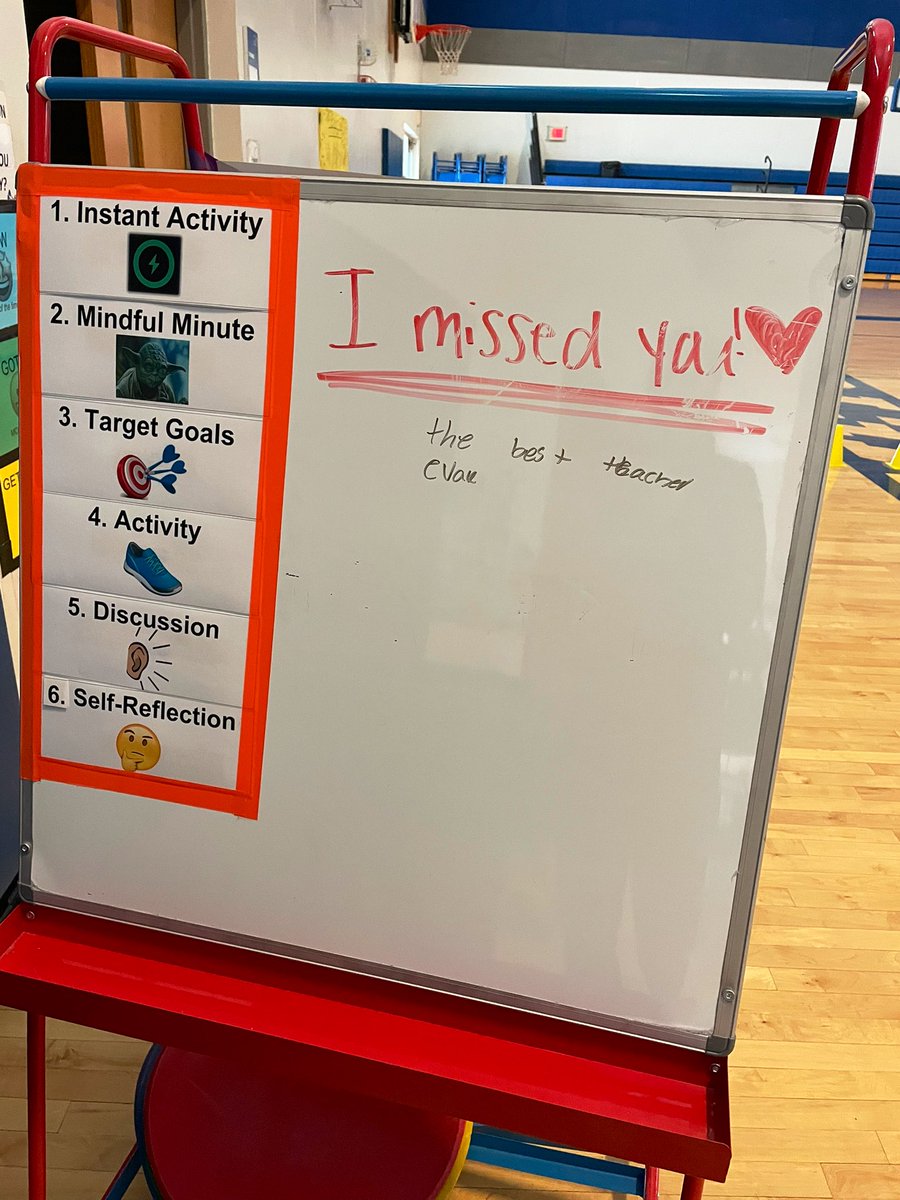 1. Instant Activity
2. Mindful Minute
3. Target Goals
4. Activity
5. Discussion
6. Self-Reflection
I missed ya!
the best teacher
evar